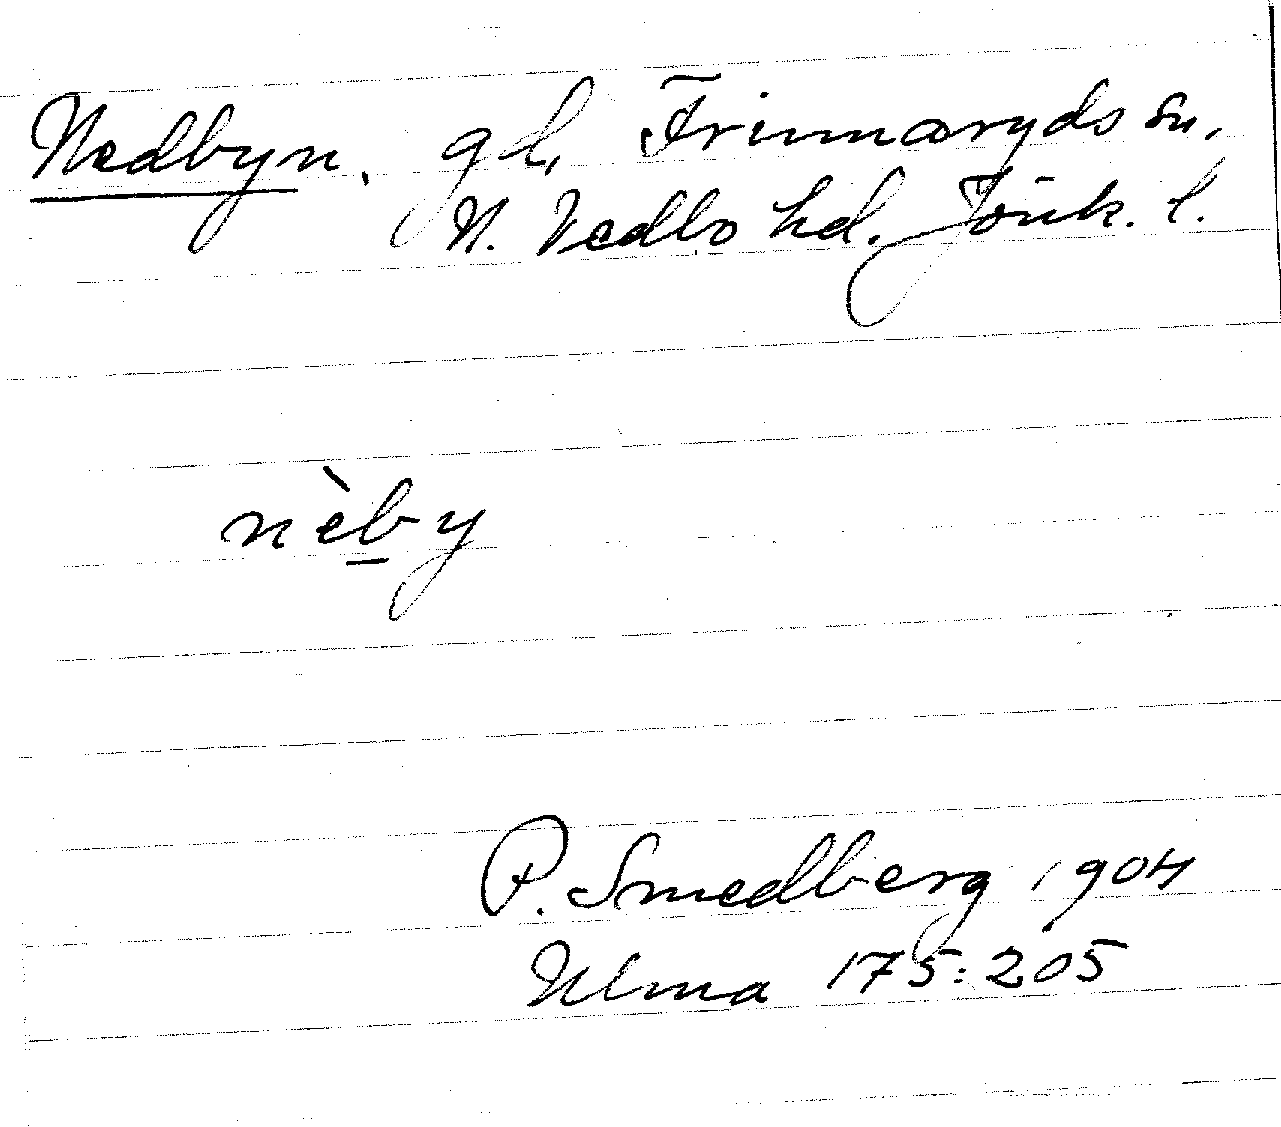 Nedbyn. gd, Frinnaryds sn.
N. Vedbo hd. Jönk. l.
nèby
P. Smedberg 1904
Ulma 175:205